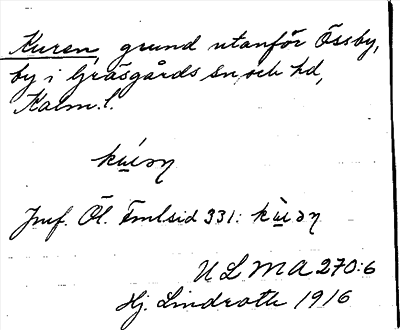 Kuren, grund utanför Össby,
by i Gräsgårds sn och hd,
Kalm. l.
Jmf. Öl. Fmlsid 331:
ULMA 270:6
Hj. Lindroth 1916